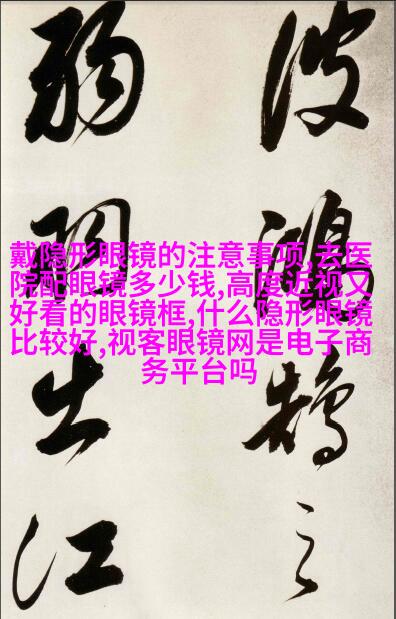 波鴻鵠之
弱出江
戴隐形眼镜的注意事项,去医
院配眼镜多少钱,高度近视又
好看的眼镜框,什么隐形眼镜
比较好,视客眼镜网是电子商
务平台吗